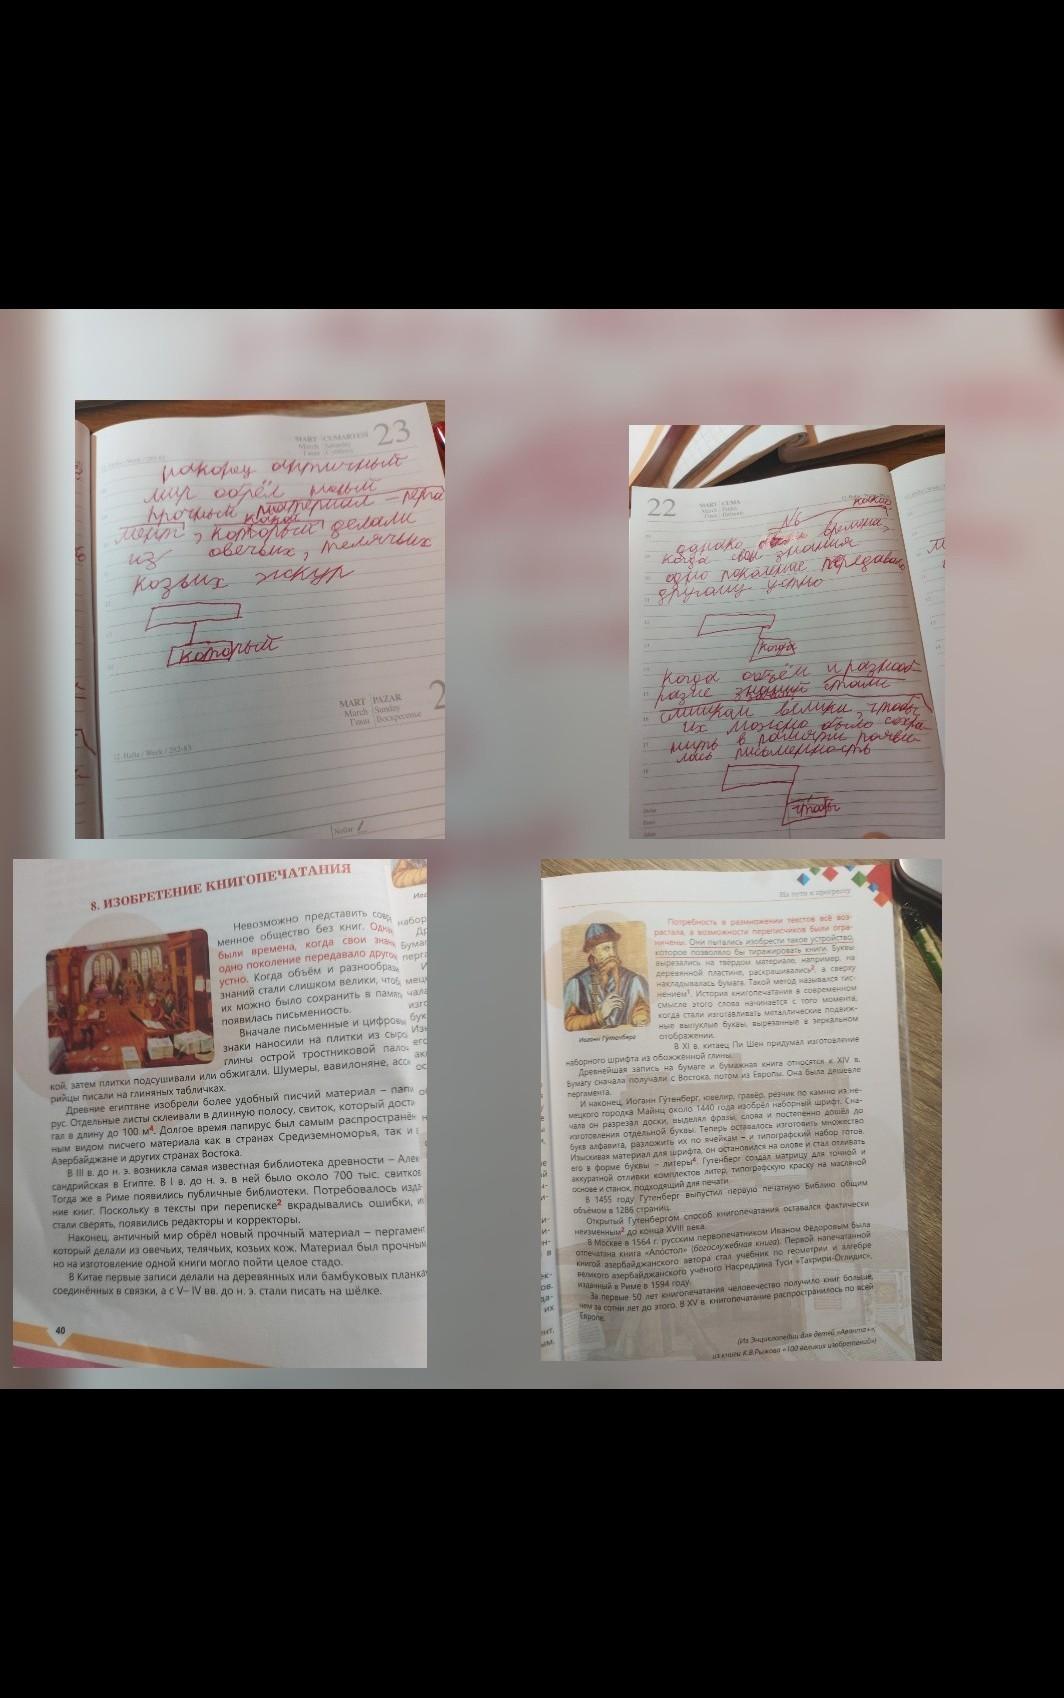 MART CUMARTESİ 23
March Saturday
наконец античный
мир обрёл новый
прочный материал – перга
какой
мент, который делали
из овечьих, телячьих
козьих шкур
который
MART PAZAR 2
March Sunday
Воскресенье
12. Hafta / Week / 282-83
Notlar
22 MART CUMA
March Friday
№6 какие
однако были времена,
когда свои знания
одно поколение передавало
другому устно
когда
Когда объём и разнооб
разие знаний стали
слишком велики, чтобы
их можно было сохра
нить в памяти появи
лась письменность
чтобы
8. ИЗОБРЕТЕНИЕ КНИГОПЕЧАТАНИЯ
Невозможно представить совр
менное общество без книг. Одна
были времена, когда свои знан
одно поколение передавало друго
устно. Когда объём и разнообраз
знаний стали слишком велики, чтоб
их можно было сохранить в памят
появилась письменность.
Вначале письменные и цифровы
знаки наносили на плитки из сыро
глины острой тростниковой пало
кой, затем плитки подсушивали или обжигали. Шумеры, вавилоняне, асс
рийцы писали на глиняных табличках.
Древние египтяне изобрели более удобный писчий материал – папи
рус. Отдельные листы склеивали в длинную полосу, свиток, который дости
гал в длину до 100 м⁴. Долгое время папирус был самым распространён
ным видом писчего материала как в странах Средиземноморья, так и в
Азербайджане и других странах Востока.
В III в. до н. э. возникла самая известная библиотека древности – Алек
сандрийская в Египте. В I в. до н. э. в ней было около 700 тыс. свитков
Тогда же в Риме появились публичные библиотеки. Потребовалось изда
ние книг. Поскольку в тексты при переписке² вкрадывались ошибки, и
стали сверять, появились редакторы и корректоры.
Наконец, античный мир обрёл новый прочный материал – пергамент
который делали из овечьих, телячьих, козьих кож. Материал был прочным
но на изготовление одной книги могло пойти целое стадо.
В Китае первые записи делали на деревянных или бамбуковых планка
соединённых в связки, а с V– IV вв. до н. э. стали писать на шёлке.
40
На пути к прогрессу
Потребность в размножении текстов всё воз-
растала, а возможности переписчиков были огра-
ничены. Они пытались изобрести такое устройство,
которое позволяло бы тиражировать книги. Буквы
вырезались на твёрдом материале, например, на
деревянной пластине, раскрашивались², а сверху
накладывалась бумага. Такой метод назывался тис-
нением³. История книгопечатания в современном
смысле этого слова начинается с того момента,
когда стали изготавливать металлические подвиж-
ные выпуклые буквы, вырезанные в зеркальном
отображении.
Иоганн Гутенберг
В XI в. китаец Пи Шен придумал изготовление
наборного шрифта из обожжённой глины.
Древнейшая запись на бумаге и бумажная книга относятся к XIV в.
Бумагу сначала получали с Востока, потом из Европы. Она была дешевле
пергамента.
И наконец, Иоганн Гу́тенберг, ювелир, гравёр, резчик по камню из не-
мецкого городка Майнц около 1440 года изобрёл наборный шрифт. Сна-
чала он разрезал доски, выделял фразы, слова и постепенно дошёл до
изготовления отдельной буквы. Теперь оставалось изготовить множество
букв алфавита, разложить их по ячейкам – и типографский набор готов.
Изыскивая материал для шрифта, он остановился на олове и стал отливать
его в форме буквы – литеры⁴. Гутенберг создал матрицу для точной и
аккуратной отливки комплектов литер, типографскую краску на масляной
основе и станок, подходящий для печати.
В 1455 году Гутенберг выпустил первую печатную Библию общим
объёмом в 1286 страниц.
Открытый Гутенбергом способ книгопечатания оставался фактически
неизменным² до конца XVIII века.
В Москве в 1564 г. русским первопечатником Иваном Фёдоровым была
отпечатана книга «Апо́стол» (богослужебная книга). Первой напечатанной
книгой азербайджанского автора стал учебник по геометрии и алгебре
великого азербайджанского учёного Насреддина Туси «Тахрири-Оглидис»,
изданный в Риме в 1594 году.
За первые 50 лет книгопечатания человечество получило книг больше,
чем за сотни лет до этого. В XV в. книгопечатание распространилось по всей
Европе.
(Из Энциклопедии для детей «Аванта+»,
из книги К.В.Рыжова «100 великих изобретений»)